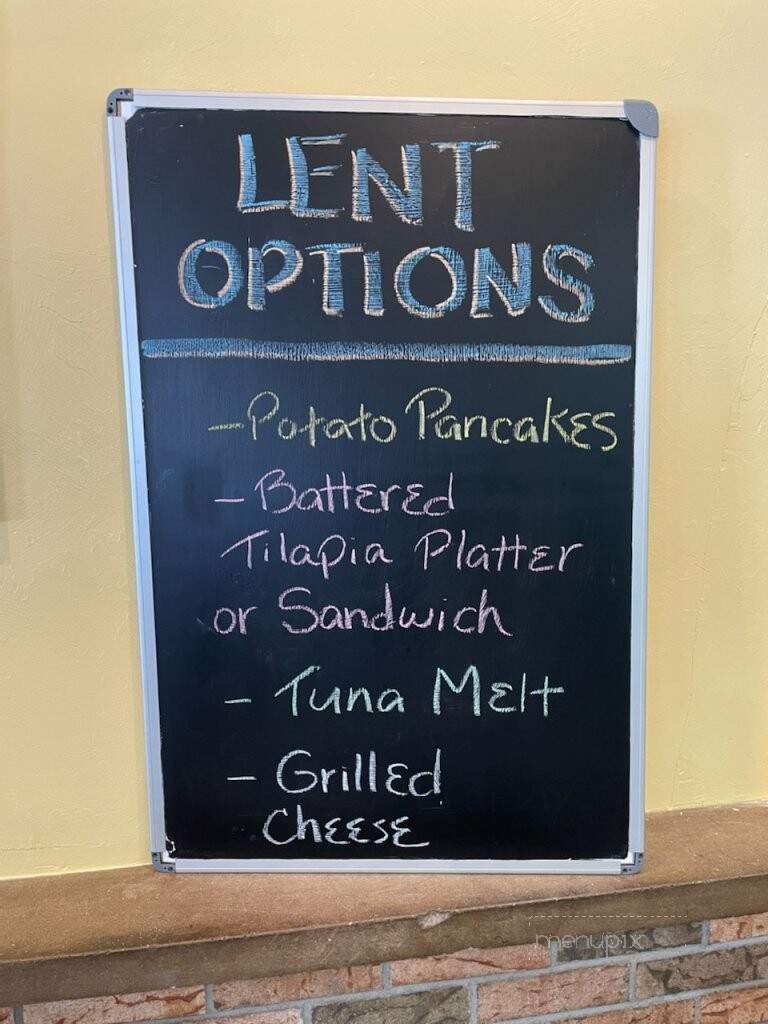 LENT
OPTIONS
- Potato Pancakes
- Battered
Tilapia Platter
or Sandwich
- Tuna Melt
- Grilled
Cheese
menupix